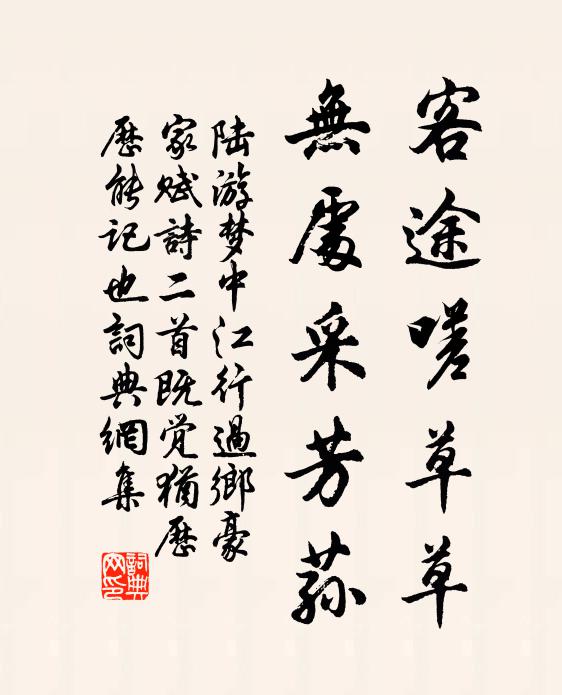 客途嗟草草
無處采芳蓀
陆游梦中江行過鄉豪
家赋詩二首既觉猶歷
歷能記也詞典網集
詞典
网印